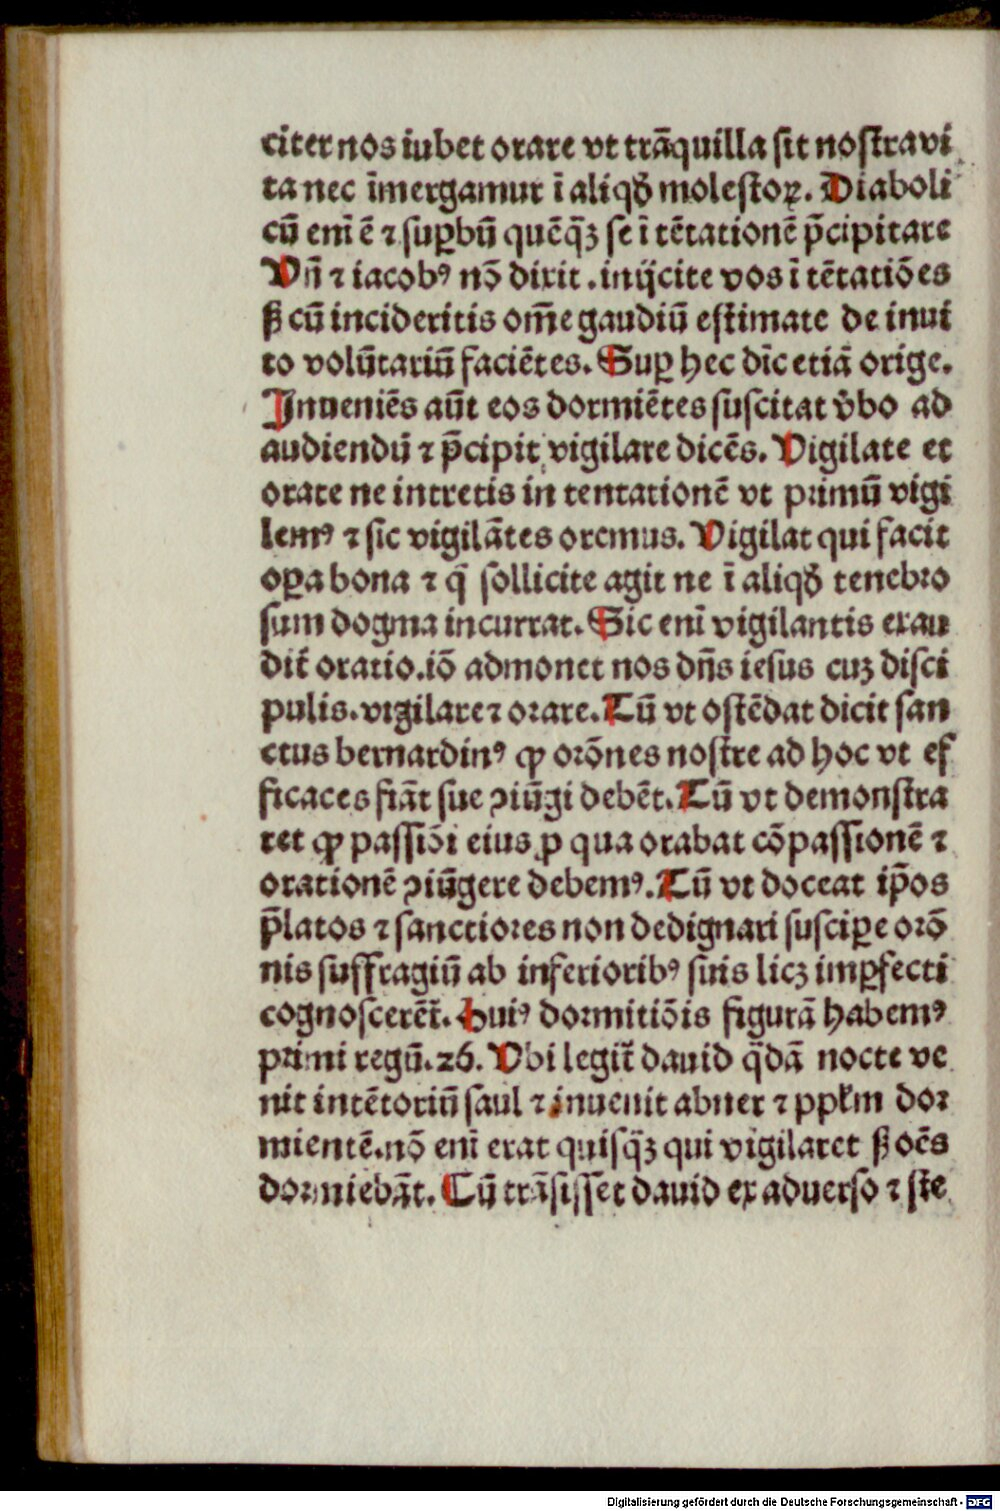 citer nos iubet orare vt trāquilla sit nostra vi
ta nec īmergamur ī aliqđ molestoꝝ. Diaboli
cū eni ē ⁊ suꝑbū quēqꝫ se ī tētationē p̄cipitare
Vñ ⁊ iacobꝰ nō dixit. inijcite vos ī tētatiōes
ß cū incideritis om̄e gaudiū estimate de inui
to volūtariū faciētes. Suꝑ hec dīc etiā orige.
Inueniēs aūt eos dormiētes suscitat v̄bo ad
audiendū ⁊ p̄cipit vigilare dicēs. Vigilate et
orate ne intretis in tentationē vt primū vigi
lemꝰ ⁊ sic vigilātes oremus. Vigilat qui facit
oꝑa bona ⁊ q̄ sollicite agit ne ī aliqđ tenebro
sum dogma incurrat. Sic enī vigilantis exau
dit̄ oratio. iō admonet nos dn̄s iesus cuꝫ disci
pulis. vigilare ⁊ orare. Tū vt ostēdat dicit san
ctus bernardinꝰ ꝙ orōnes nostre ad hoc vt ef
ficaces fiāt sue ↄiūgi debēt. Tū vt demonstra
ret ꝙ passiōi eius ꝓ qua orabat cōpassionē ⁊
orationē ↄiūgere debemꝰ. Tū vt doceat ip̄os
p̄latos ⁊ sanctiores non dedignari susciꝑe orō
nis suffragiū ab inferioribꝰ suis licꝫ imꝑfecti
cognoscerēt̄. Huiꝰ dormitiōis figurā habemꝰ
primi regū. 26. Vbi legit̄ dauid q̄dā nocte ve
nit intētoriū saul ⁊ inuenit abner ⁊ ppl̄m dor
mientē. nō enī erat quisqꝫ qui vigilaret ß oēs
dormiebāt. Cū trāsisset dauid ex aduerso ⁊ ste
Digitalisierung gefördert durch die Deutsche Forschungsgemeinschaft - DFG